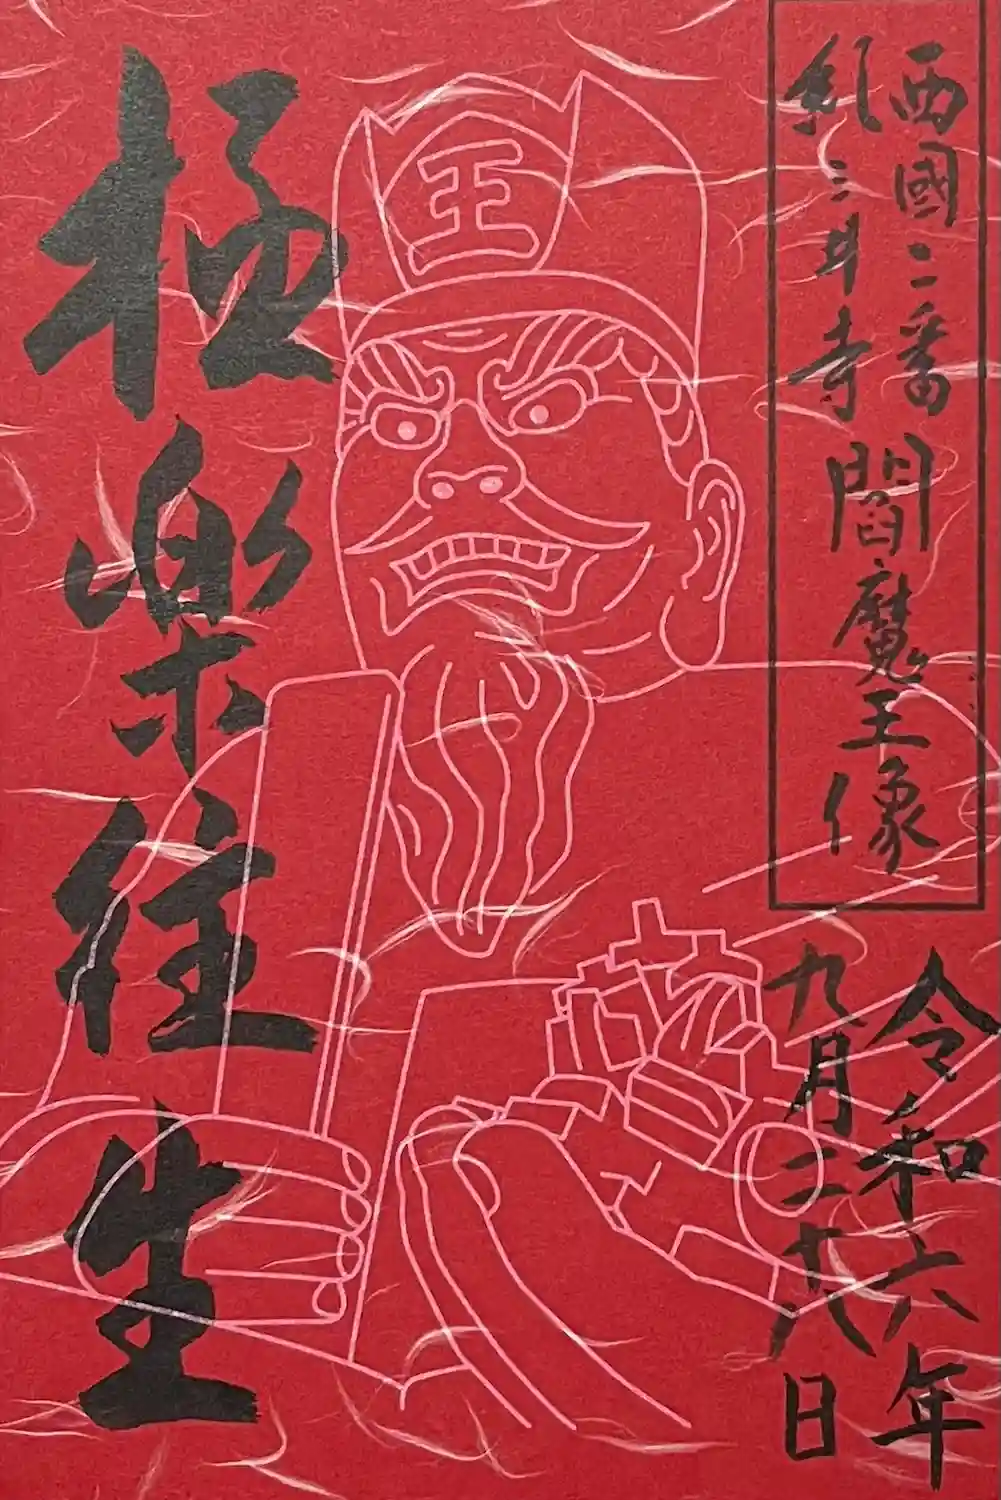 西國二番
紀三井寺 閻魔王像
令和六年
九月二十八日
王
極楽往生